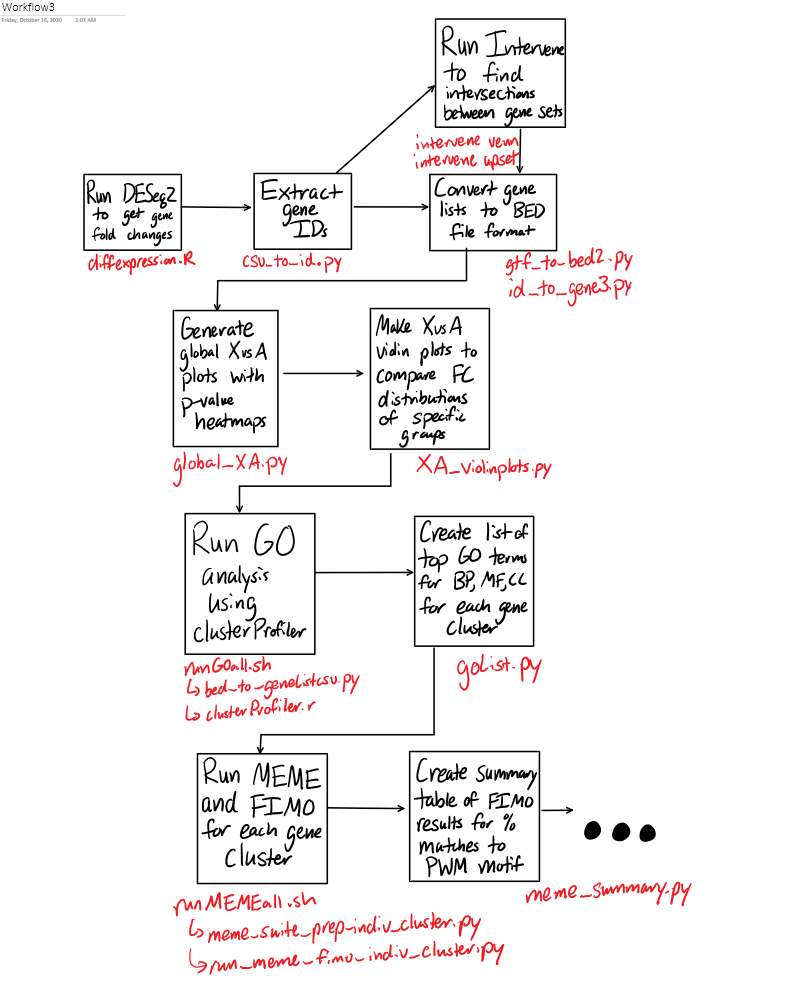 Workflow3
Friday, October 16, 2020 2:01 AM
Run Intervene
to find
intersections
between gene sets
intervene venn
intervene upset
Run DESeq2
to get gene
fold changes
diffexpression.R
Extract
gene
IDs
csv_to_id.py
Convert gene
lists to BED
file format
gtf_to_bed2.py
id_to_gene3.py
Generate
global XvsA
plots with
p-value
heatmaps
global_XA.py
Make XvsA
violin plots to
compare FC
distributions
of specific
groups
XA_violinplots.py
Run GO
analysis
using
clusterProfiler
runGOall.sh
↳ bed_to_genelistcsv.py
↳ clusterProfiler.r
Create list of
top GO terms
for BP, MF, CC
for each gene
cluster
golist.py
Run MEME
and FIMO
for each gene
cluster
runMEMEall.sh
↳ meme_suite_prep_indiv_cluster.py
↳ run_meme_fimo_indiv_cluster.py
Create summary
table of FIMO
results for %
matches to
PWM motif
meme_summary.py